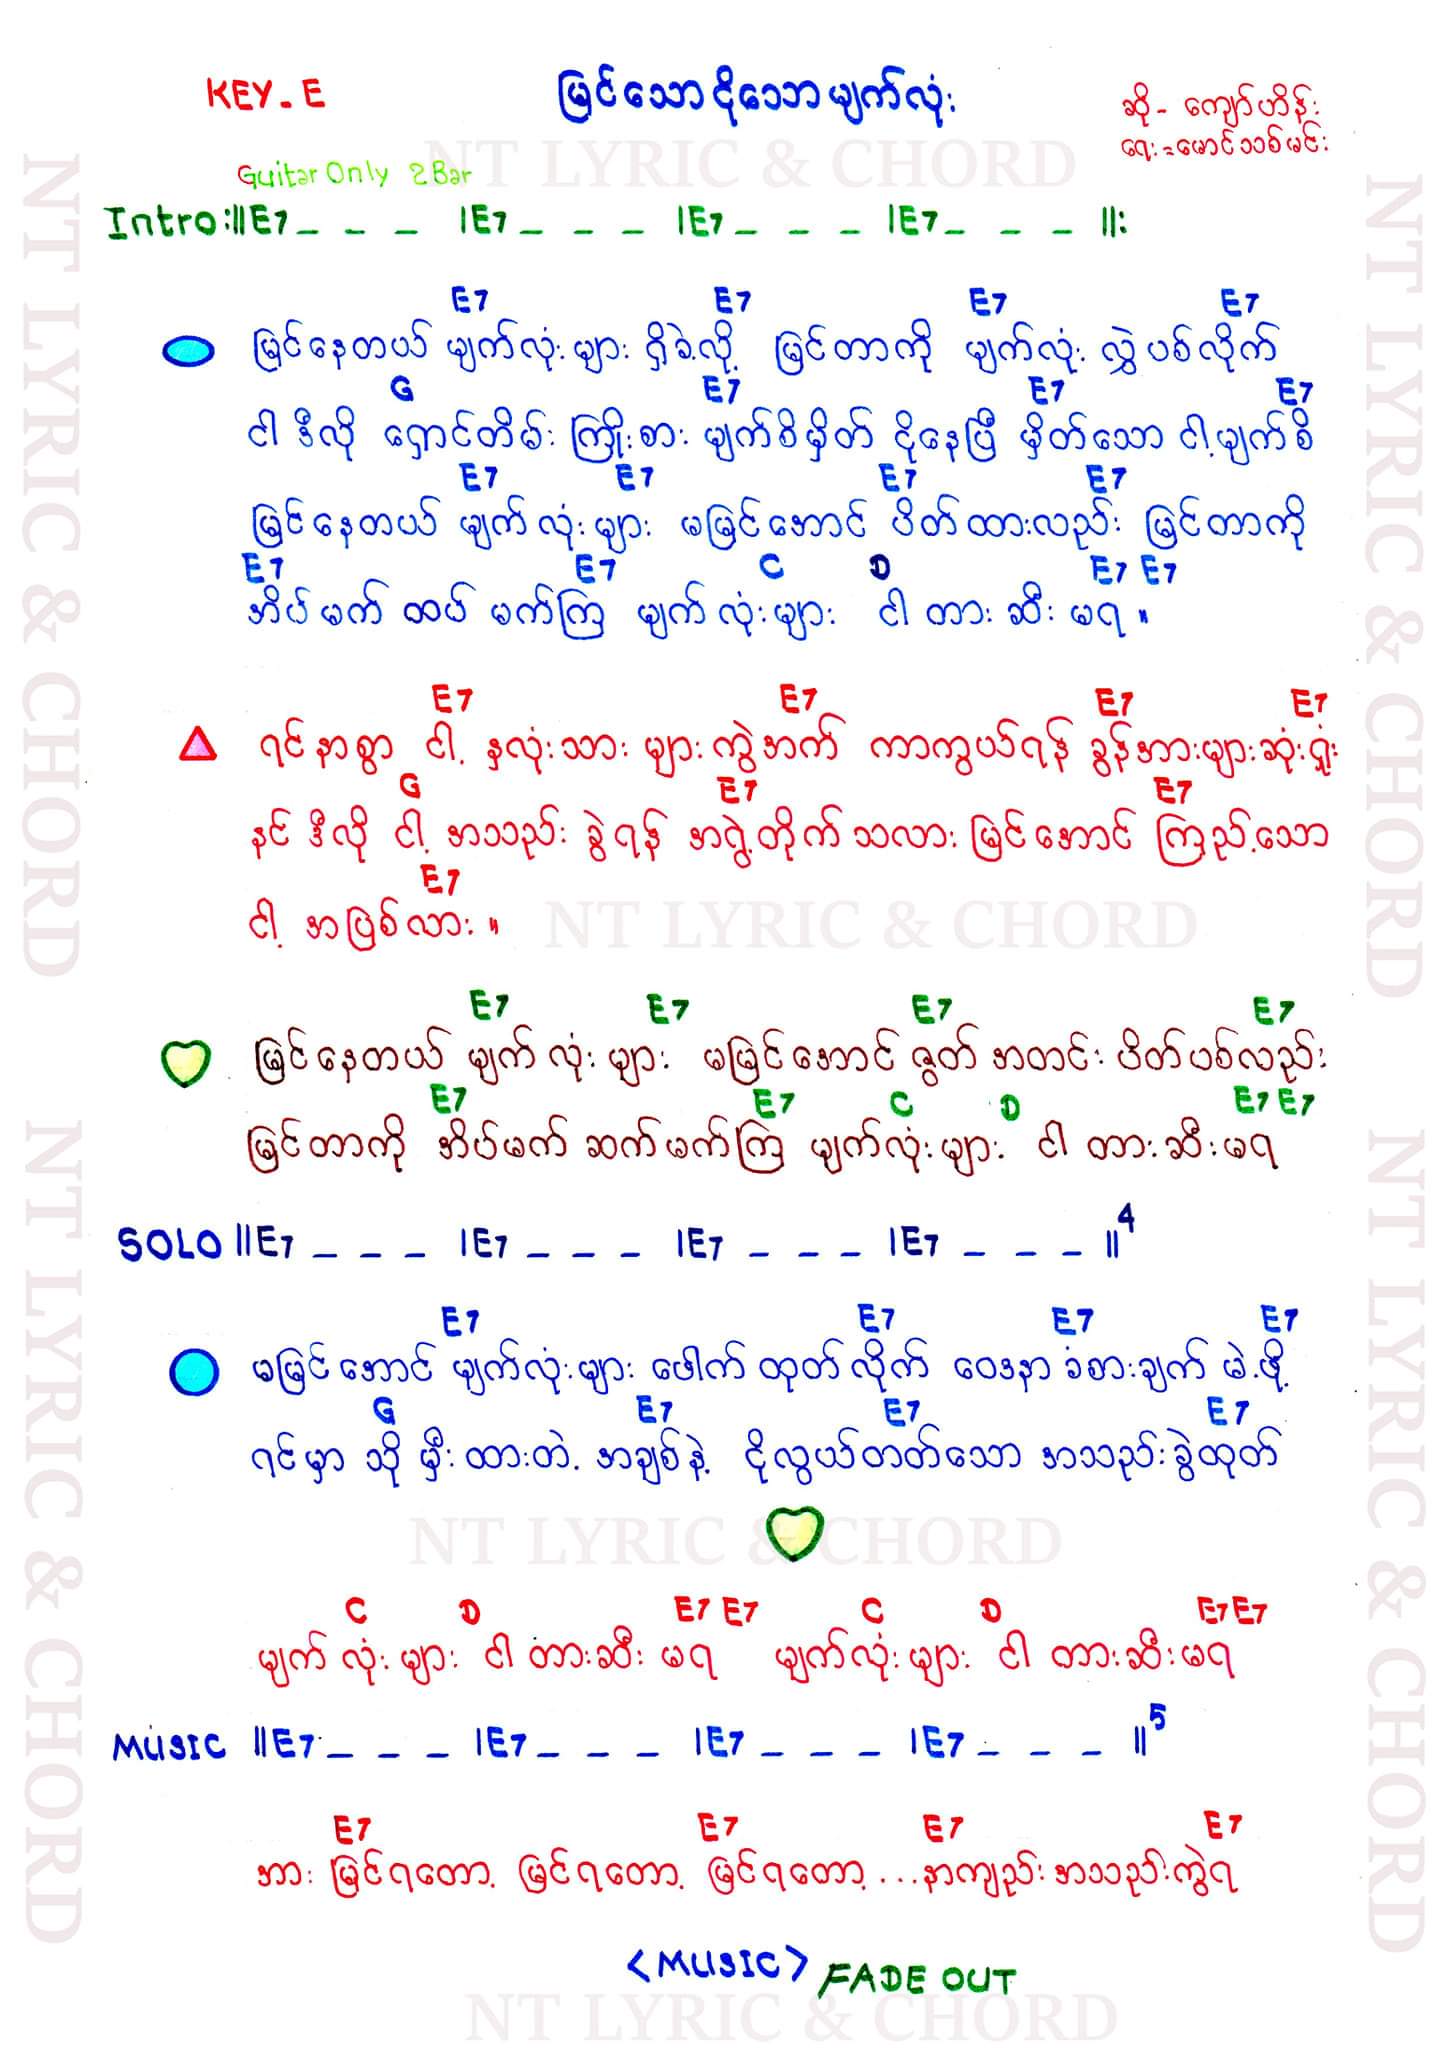 KEY - E
မြင်သောငိုသောမျက်လုံး
ဆို - ကျော်ဟိန်း
ရေး = မောင်သစ်မင်း
Guitar Only 2 Bar
Intro :||E7 _ _ _ |E7 _ _ _ |E7 _ _ _ |E7 _ _ _ ||:
E7 E7 E7 E7
မြင်နေတယ် မျက်လုံးများ ရှိခဲ့လို့ မြင်တာကို မျက်လုံး လွှဲပစ်လိုက်
G E7 E7 E7
ငါ ဒီလို ရှောင်တိမ်း ကြိုးစား မျက်စိမှိတ် ငိုနေပြီ မှိတ်သော ငါ့မျက်စိ
E7 E7 E7 E7
မြင်နေတယ် မျက်လုံးများ မမြင်အောင် ပိတ်ထားလည်း မြင်တာကို
E7 E7 C D E7 E7
အိပ်မက် ထပ် မက်ကြ မျက်လုံးများ ငါ တားဆီး မရ ။
E7 E7 E7 E7
ရင်နာစွာ ငါ့ နှလုံးသား များကွဲအက် ကာကွယ်ရန် ခွန်အားများဆုံးရှုံး
G E7 E7
နင် ဒီလို ငါ့ အသည်း ခွဲရန် အရွဲ့တိုက်သလား မြင်အောင် ကြည့်သော
E7
ငါ့ အပြစ်လား ။
E7 E7 E7 E7
မြင်နေတယ် မျက်လုံးများ မမြင်အောင် ဇွတ်အတင်း ပိတ်ပစ်လည်း
E7 E7 C D E7 E7
မြင်တာကို အိပ်မက် ဆက်မက်ကြ မျက်လုံးများ ငါ တားဆီးမရ
SOLO ||E7 _ _ _ |E7 _ _ _ |E7 _ _ _ |E7 _ _ _ ||4
E7 E7 E7 E7
မမြင်အောင် မျက်လုံးများ ဖေါက်ထုတ်လိုက် ဝေဒနာ ခံစားချက် မဲ့ဖို့
G E7 E7 E7
ရင်မှာ သို မှီးထားတဲ့ အချစ်နဲ့ ငိုလွယ်တတ်သော အသည်းခွဲထုတ်
C D E7 E7 C D E7 E7
မျက်လုံးများ ငါ တားဆီး မရ မျက်လုံးများ ငါ တားဆီးမရ
MUSIC ||E7 _ _ _ |E7 _ _ _ |E7 _ _ _ |E7 _ _ _ ||5
E7 E7 E7 E7
အား မြင်ရတော့ မြင်ရတော့ မြင်ရတော့ ... နာကျည်း အသည်းကွဲရ
<MUSIC> FADE OUT
NT LYRIC & CHORD
NT LYRIC & CHORD
NT LYRIC & CHORD
NT LYRIC & CHORD
NT LYRIC & CHORD
NT LYRIC & CHORD
NT LYRIC & CHORD
NT LYRIC & CHORD